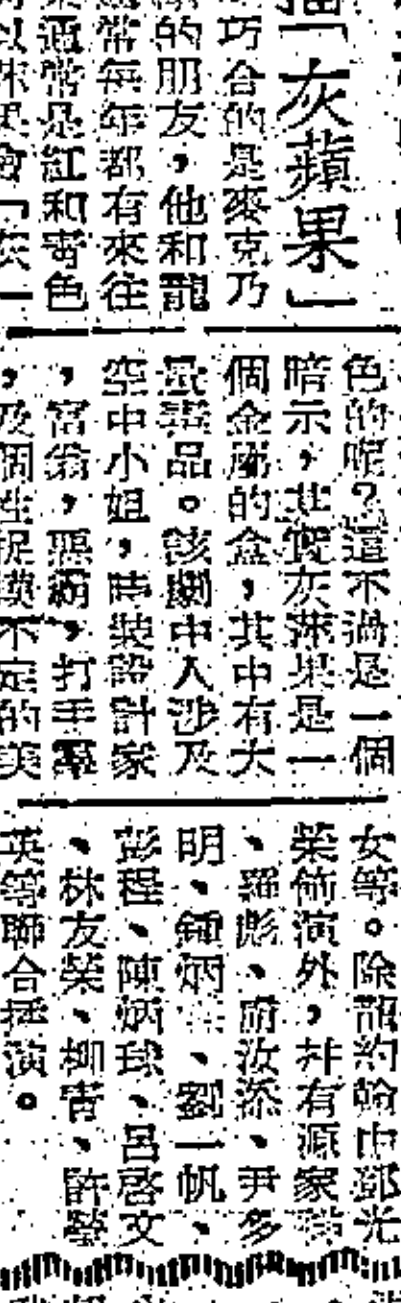 「灰蘋果」
巧合的是麥克乃
的朋友，他和龍
常每年都有來往
通常是紅和青色
色的呢？這不過是一個
暗示，其實灰蘋果是一
個金屬的盒，其中有大
量毒品。該劇中人涉及
空中小姐，時裝設計家
，富翁，惡霸，打手羣
，及個性捉摸不定的美
女等。除龍約翰由鄧光
榮飾演外，幷有源家祥
、羅彪、府汝添、尹多
明、鍾炳、劉一帆、
彭程、陳炳球、呂啓文
、林友榮、柳青、許瑩
英等聯合演。